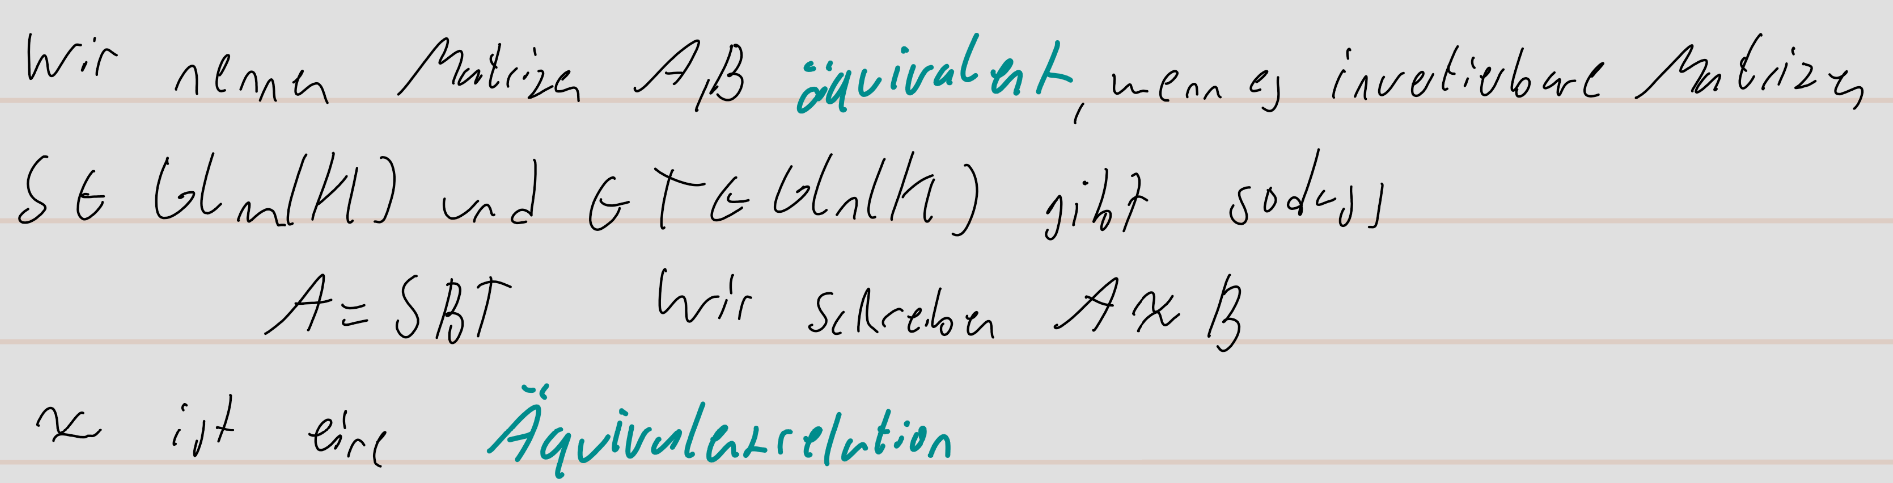 Wir nennen Matrizen A,B äquivalent, wenn es invertierbare Matrizen
S ∈ GLm(K) und ∈ T ∈ Gln(K) gibt sodass
A = SBT Wir schreiben A ~ B
~ ist eine Äquivalenzrelation